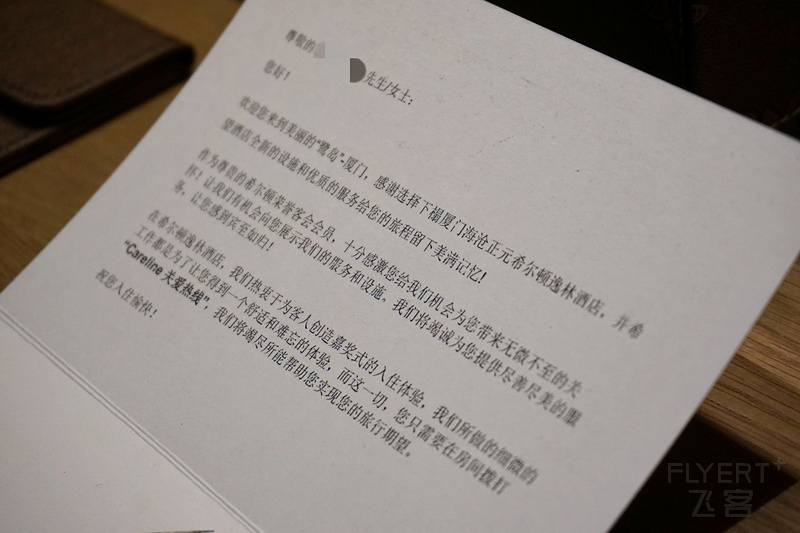 尊敬的 先生/女士：
您好！
欢迎您来到美丽的“鹭岛”-厦门，感谢选择下榻厦门海沧正元希尔顿逸林酒店，并希
望酒店全新的设施和优质的服务给您的旅程留下美满记忆！
作为尊贵的希尔顿荣誉客会会员，十分感激您给我们机会为您带来无微不至的关
怀！让我们有机会向您展示我们的服务和设施。我们将竭诚为您提供尽善尽美的服
务，让您感到宾至如归！
在希尔顿逸林酒店，我们热衷于为客人创造嘉奖式的入住体验，我们所做的细微的
工作都是为了让您得到一个舒适和难忘的体验，而这一切，您只需要在房间拨打
“Careline 关爱热线”，我们将竭尽所能帮助您实现您的旅行期望。
祝您入住愉快！
FLYERT+
飞客